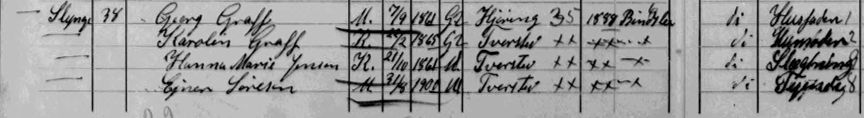 — Slynge 38 Georg Graff M. 7/9 1861 Gt Hjöring 35 1888 Bindslev di Husfader
— Karolin Graff K. 22/2 1865 Gt Tversted ×× ××–– di Husmoder
— Hanna Marie Jensen K. 21/10 1861 U Tversted ×× ××–× di
— Ejner Sörensen M. 31/8 1901 U Tversted ×× ××–× di